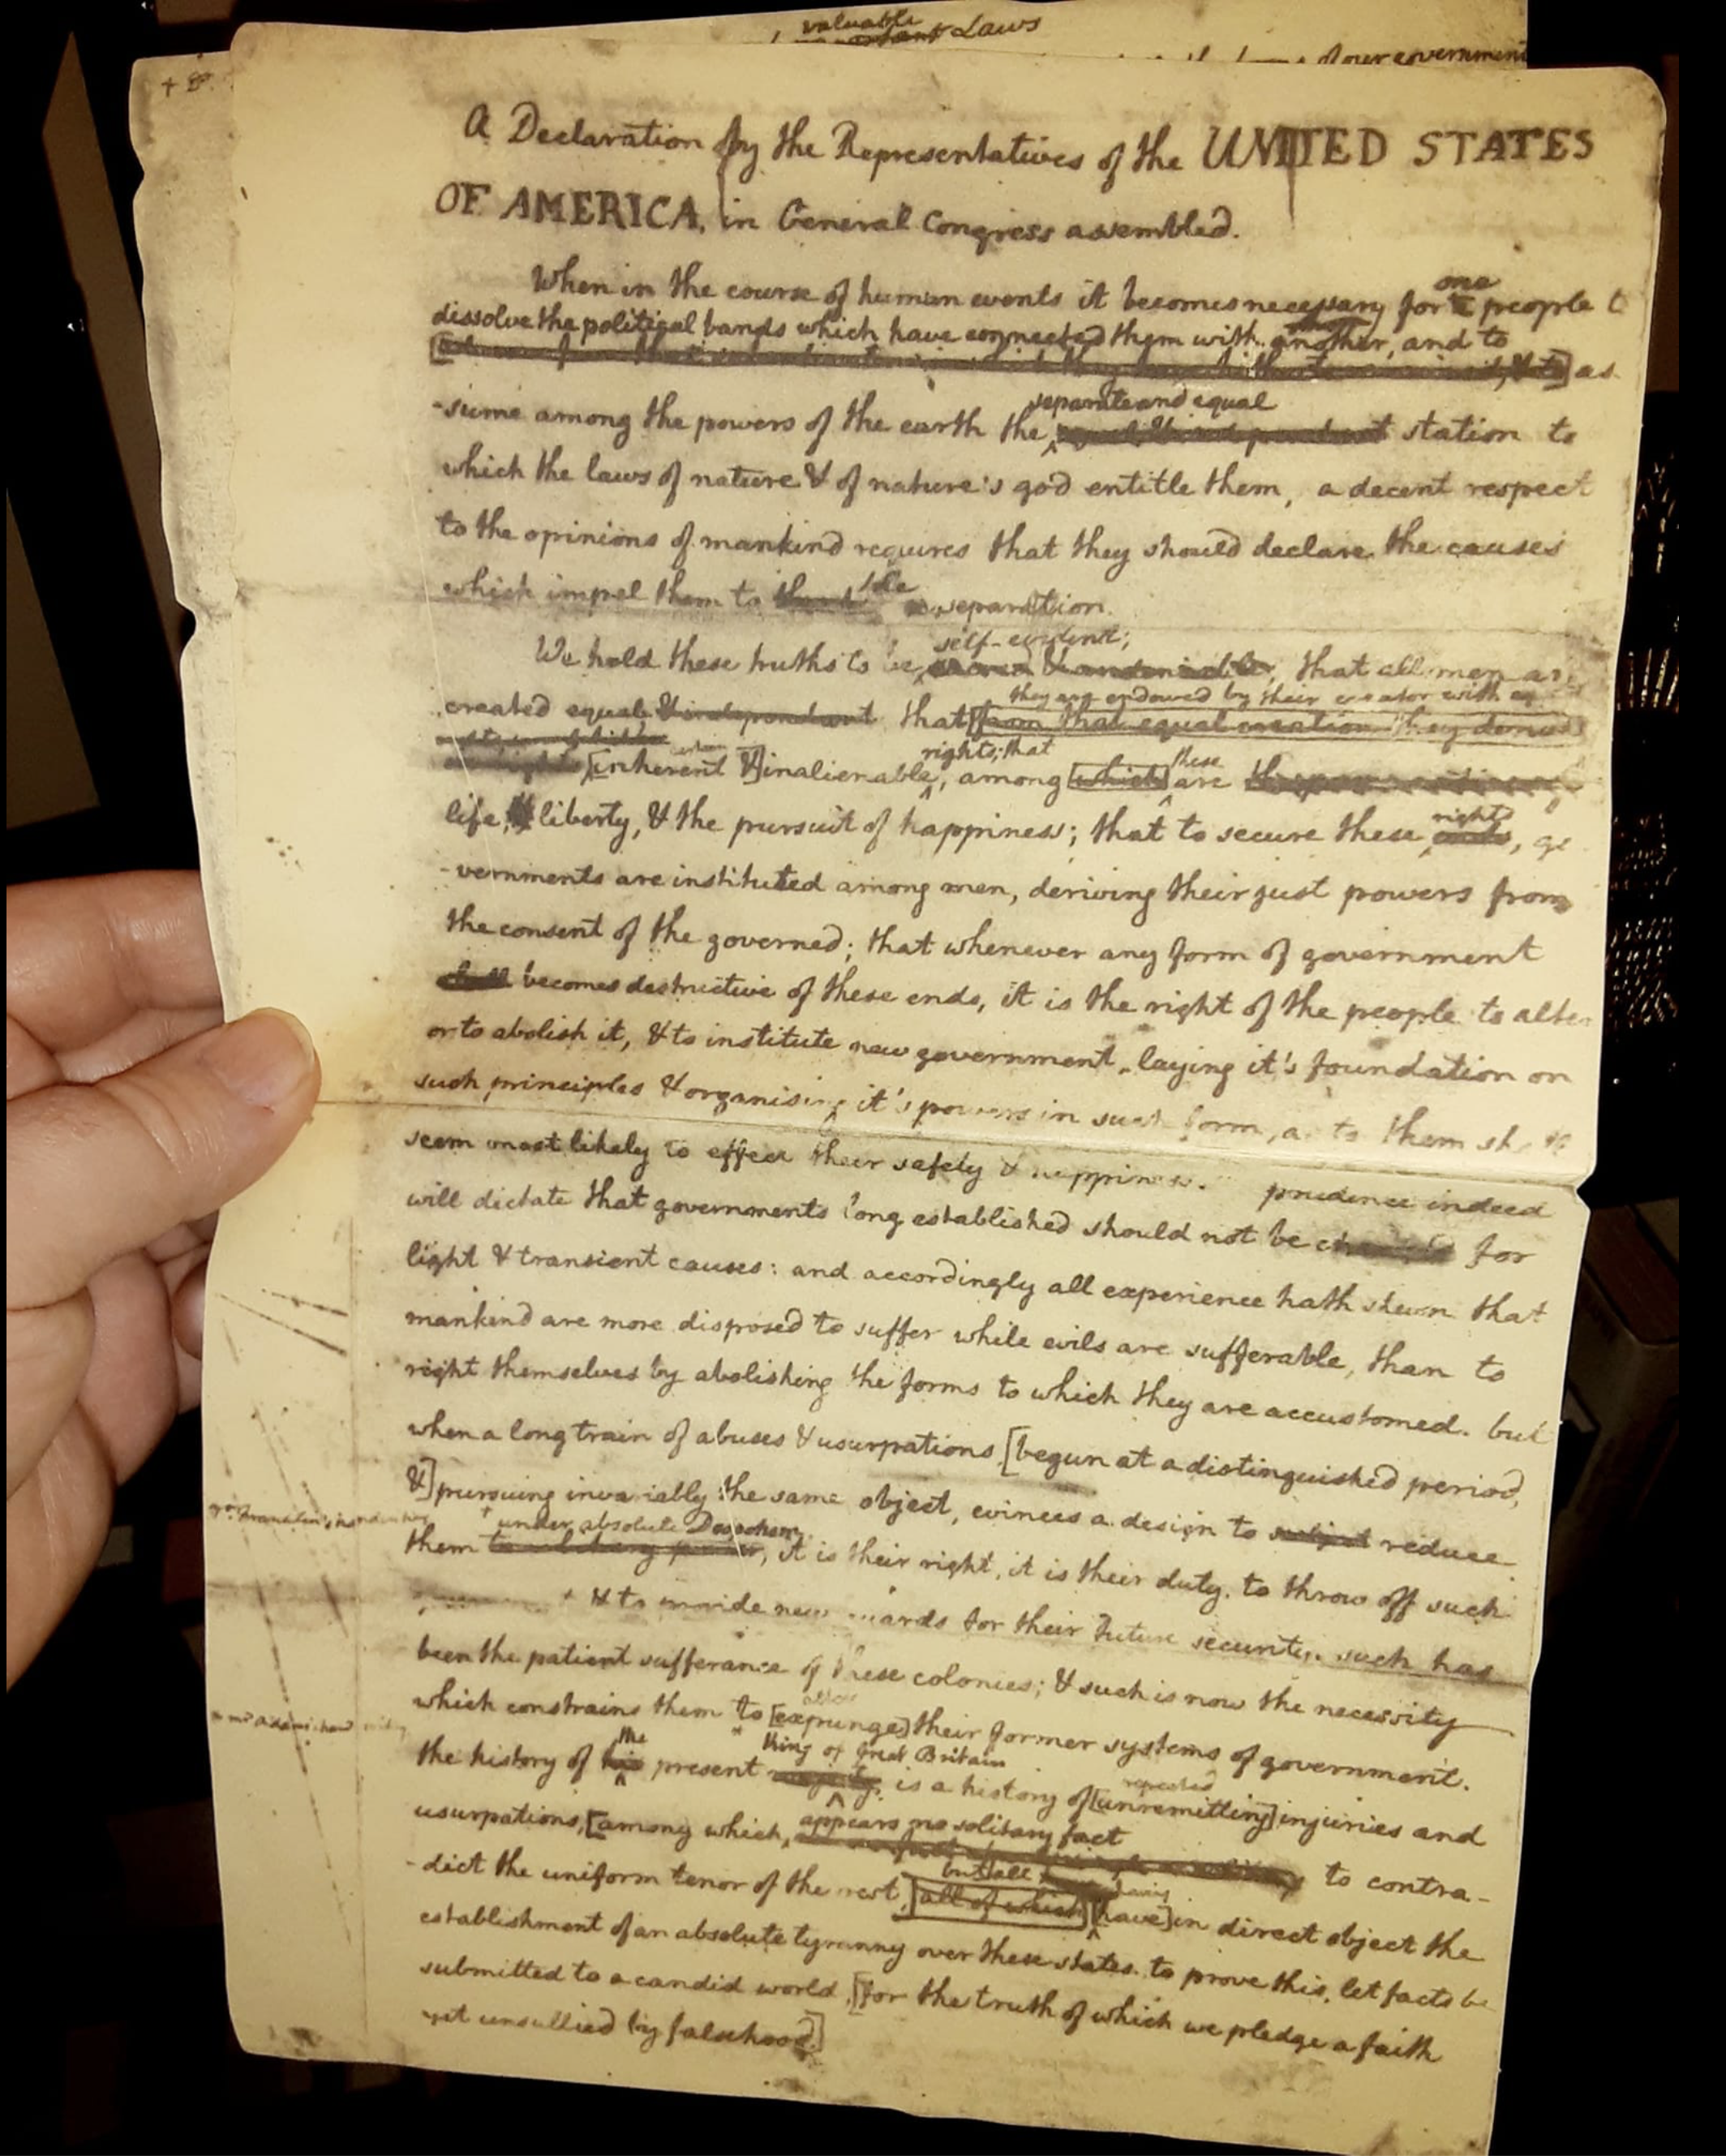 valuable
, Laws
of our government
A Declaration by the Representatives of the UNITED STATES
OF AMERICA, in General Congress assembled.
When in the course of human events it becomes necessary for one people
dissolve the political bands which have connected them with another, and to
as
separate and equal
-sume among the powers of the earth the station to
which the laws of nature & of nature's god entitle them, a decent respect
to the opinions of mankind requires that they should declare the causes
which impel them to the separation.
self-evident;
We hold these truths to be, that all men
they are endowed by their creator with
created equal & independant that [from that equal creation they
rights; that these
[inherent &] inalienable, among [which] are
life, & liberty, & the pursuit of happiness; that to secure these rights,
-vernments are instituted among men, deriving their just powers from
the consent of the governed; that whenever any form of government
shall becomes destructive of these ends, it is the right of the people to alter
or to abolish it, & to institute new government, laying it's foundation on
such principles & organising it's powers in such form, as to them
seem most likely to effect their safety & happiness. prudence indeed
will dictate that governments long established should not be for
light & transient causes: and accordingly all experience hath shewn that
mankind are more disposed to suffer while evils are sufferable, than to
right themselves by abolishing the forms to which they are accustomed. but
when a long train of abuses & usurpations, [begun at a distinguished period,
&] pursuing invariably the same object, evinces a design to subject reduce
under absolute Despotism
them, it is their right, it is their duty, to throw off such
& to provide new guards for their future security. such has
been the patient sufferance of these colonies; & such is now the necessity
alter
which constrains them to [expunge] their former systems of government.
the king of Great Britain
the history of his present is a history of [unremitting] injuries and
repeated
usurpations, [among which, appears no solitary fact to contra-
but all having
-dict the uniform tenor of the rest, [all of which] [have] in direct object the
establishment of an absolute tyranny over these states. to prove this, let facts be
submitted to a candid world, [for the truth of which we pledge a faith
yet unsullied by falsehood.]